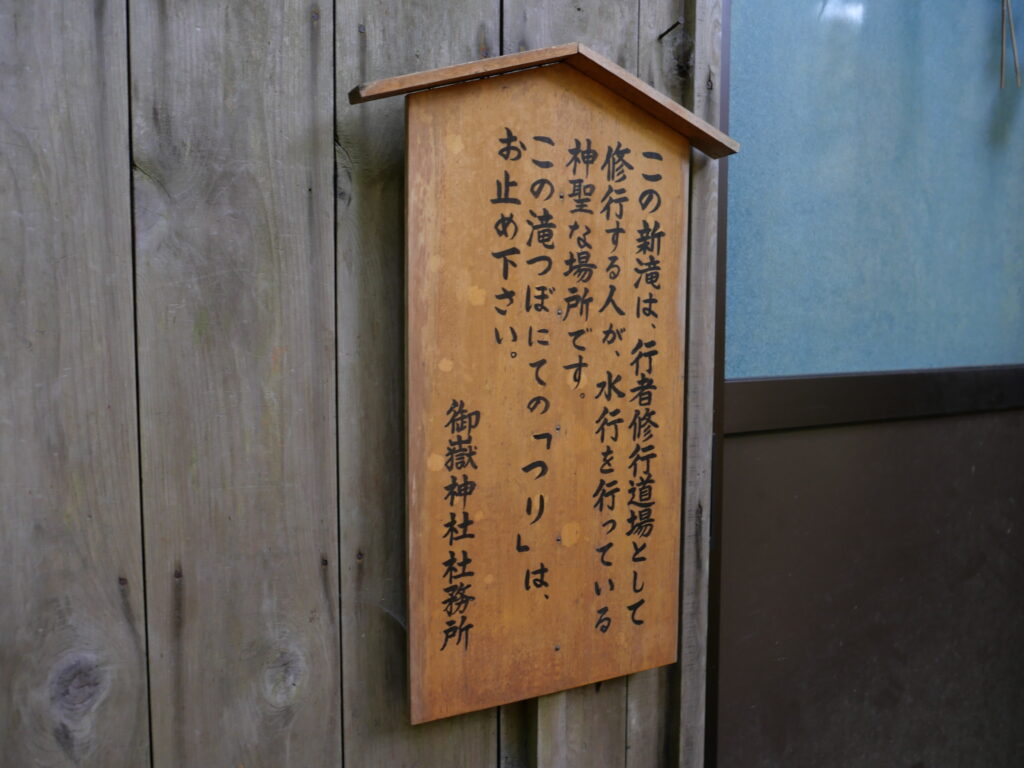 この新滝は、行者修行道場として
修行する人が、水行を行っている
神聖な場所です。
この滝つぼにての「つり」は、
お止め下さい。
御嶽神社社務所